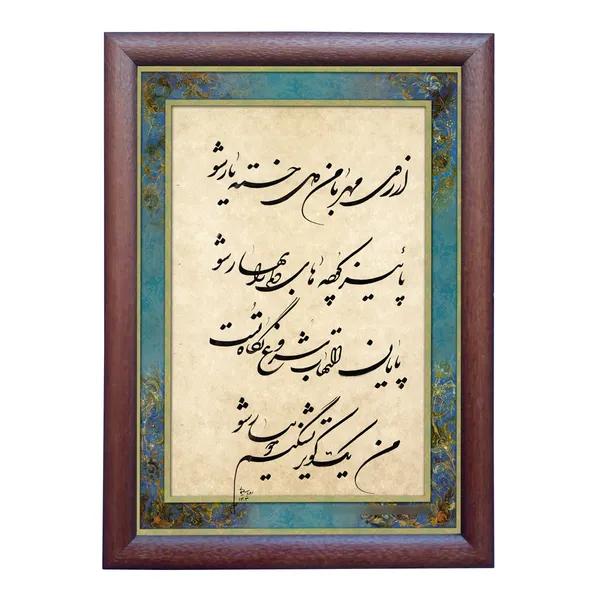 از مهر با من خسته یار شو
پائیز کوچه های دلم را بهار شو
پایان التهاب شروع نگاه تست
من یک کویر تشنگیم جویبار شو